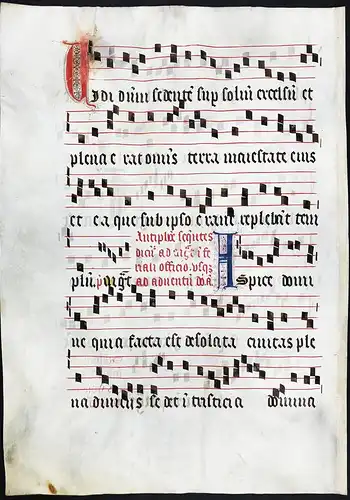 Vidi dūm sedentē sup soliū excelsū et
plena e rat omīs terra maiestate eius
et ea que sub ipso erant replebāt tem
plū. p̄
Antiphē seqūtes
dicūt ad in fe
riali officio vsqꝫ
ad aduentū dn̄i
Aspice domi
ne quia facta est desolata ciuitas ple
na diuiciis se det ī tristicia domina